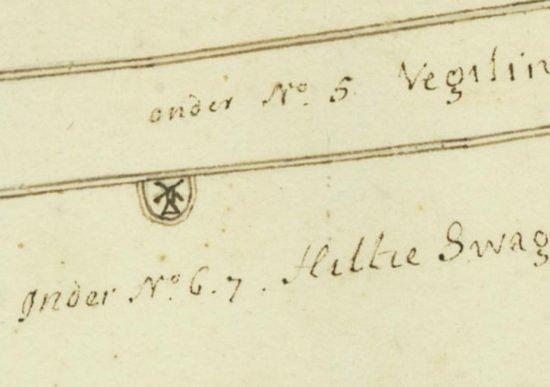 onder No. 5. Vegilin
onder No. 6.7. Hiltie Swag